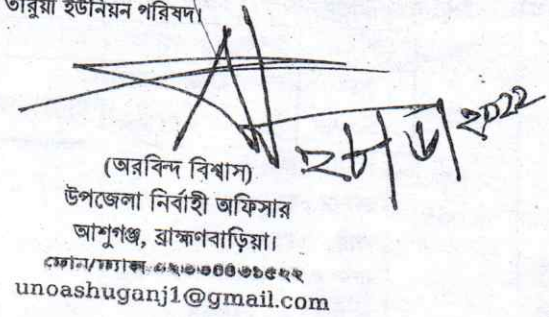 তারুয়া ইউনিয়ন পরিষদ।
২০২২
(অরবিন্দ বিশ্বাস)
উপজেলা নির্বাহী অফিসার
আশুগঞ্জ, ব্রাহ্মণবাড়িয়া।
ফোন/ফ্যাক্স
unoashuganj1@gmail.com